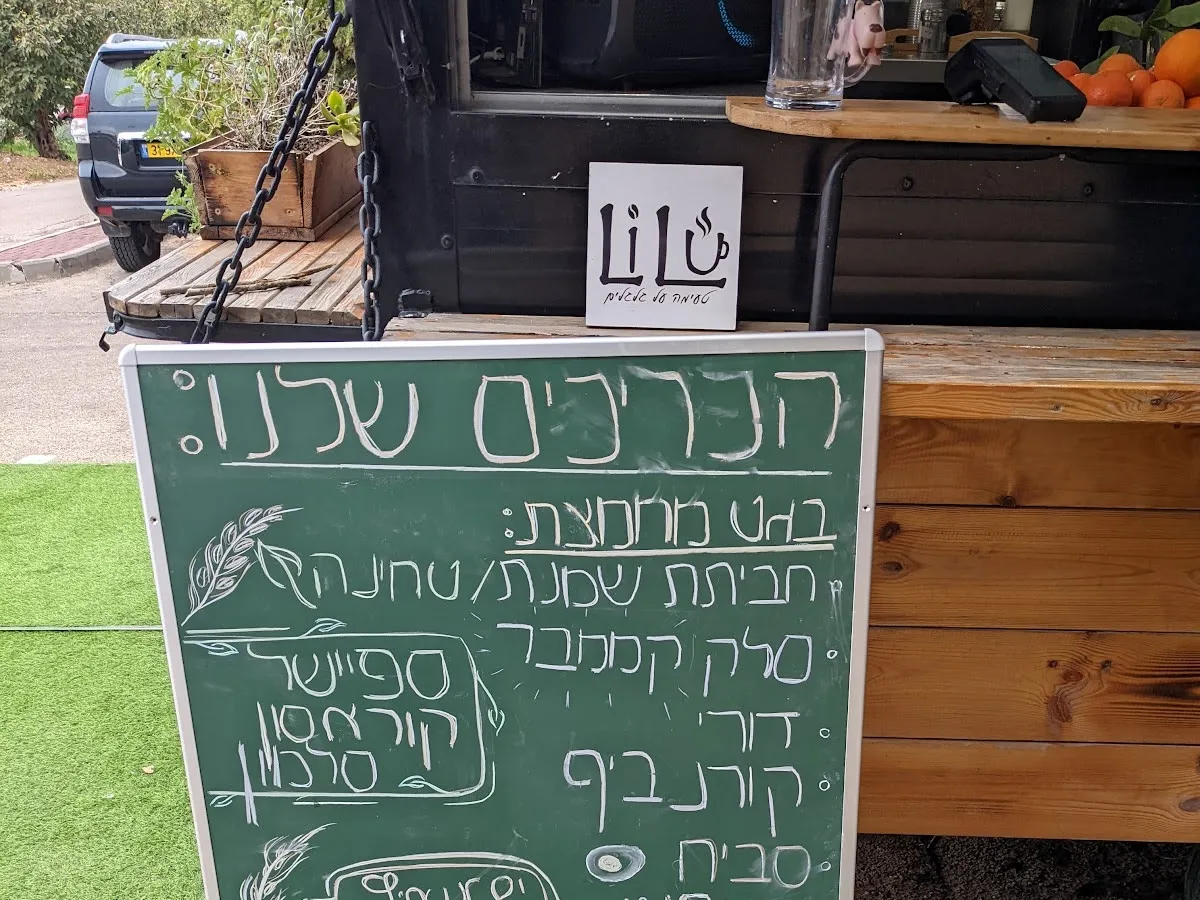 LiLu
טעימה על גלגלים
הכריכים שלנו:
באגט מחמצת:
חביתת שמנת/טחינה
סלק קממבר
דורי
קורנ ביף
סביח
ספיישל
קוראסון
סלמון